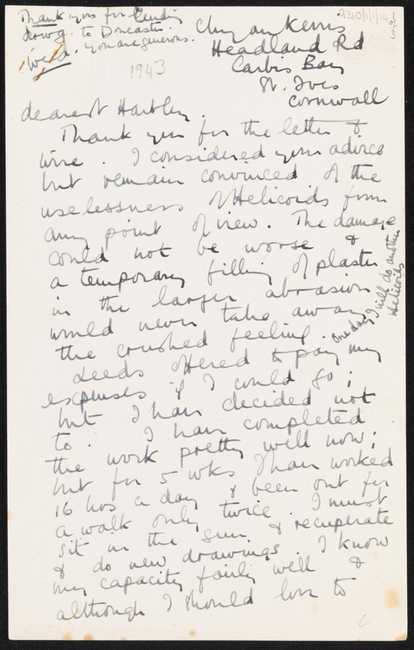 Thank you for sending
drawg. to Doncaster.
Wed. you are generous.
Chy an Kerris
Headland Rd
Carbis Bay
St. Ives
Cornwall
1943
dearest Hartley.
Thank you for the letter &
wire. I considered your advice
but remain convinced of the
uselessness of Helicoids from
any point of view. The damage
could not be worse &
a temporary filling of plaster
in the larger abrasion
would never take away
the crushed feeling.
One day I will do another
Helicoids
Leeds offered to pay my
expenses if I could go;
but I have decided not
to. I have completed
the work pretty well now;
but for 5 wks I have worked
16 hrs a day & been out for
a walk only twice. I must
sit in the sun & recuperate
& do new drawings. I know
my capacity fairly well &
although I should love to